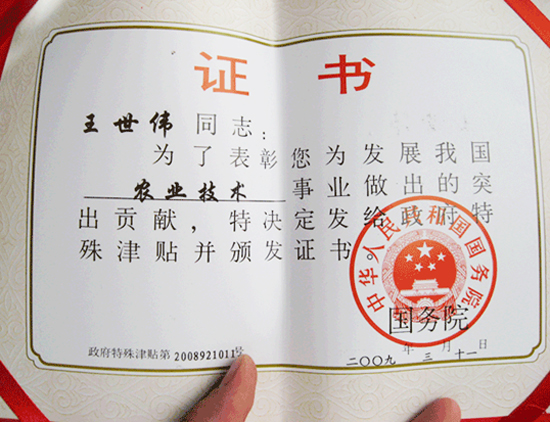 证书
王世伟同志：
为了表彰您为发展我国
农业技术事业做出的突
出贡献，特决定发给政府特
殊津贴并颁发证书。
中华人民共和国国务院
国务院
政府特殊津贴第2008921011号
二〇〇九年三月十一日